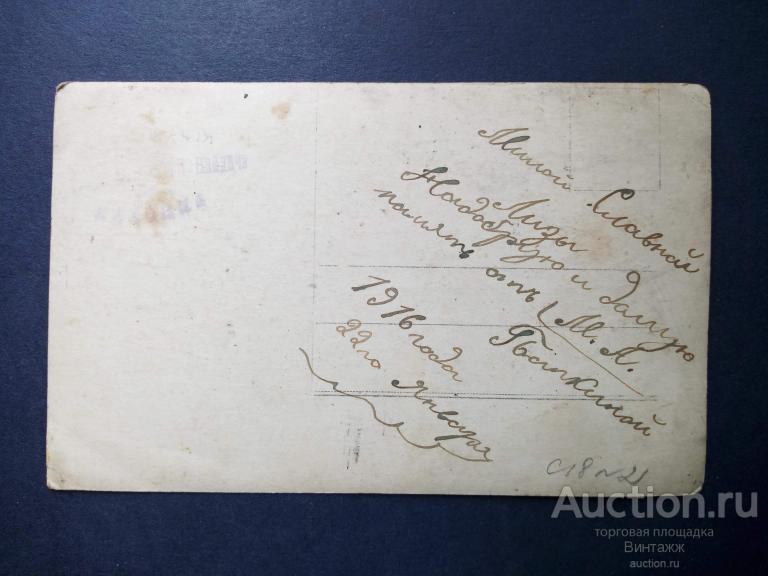 Милой Славной
Лизы
На добрую и долгую
память отъ М. Л.
1916 года
22го Января
С18 №21
Auction.ru
торговая площадка
Винтажж
auction.ru